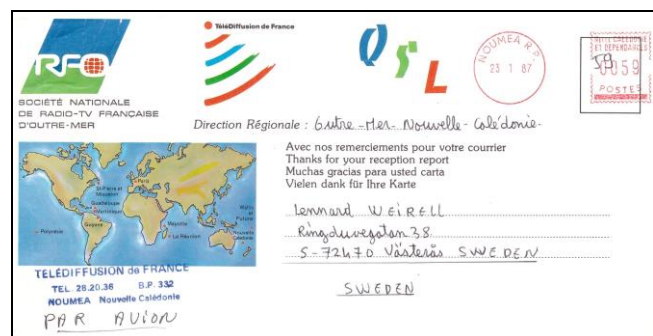 RFO
SOCIÉTÉ NATIONALE
DE RADIO-TV FRANÇAISE
D'OUTRE-MER
TéléDiffusion de France
QSL
NOUMEA R.P.
23 1 87
NLLE CALEDONIE
ET DEPENDANCES
0059
POSTES
59
Direction Régionale : Outre-Mer Nouvelle-Calédonie-
Avec nos remerciements pour votre courrier
Thanks for your reception report
Muchas gracias para usted carta
Vielen dank für Ihre Karte
Lennard WEIRELL
Ringduvegatan 38
S-72470 Västerås SWEDEN
SWEDEN
St-Pierre et
Miquelon
Paris
Guadeloupe
Martinique
Guyane
Polynésie
Mayotte
La Réunion
Wallis
et
Futuna
Nouvelle
Calédonie
TÉLÉDIFFUSION de FRANCE
TEL. 28.20.36 B.P. 332
NOUMEA Nouvelle Calédonie
PAR AVION